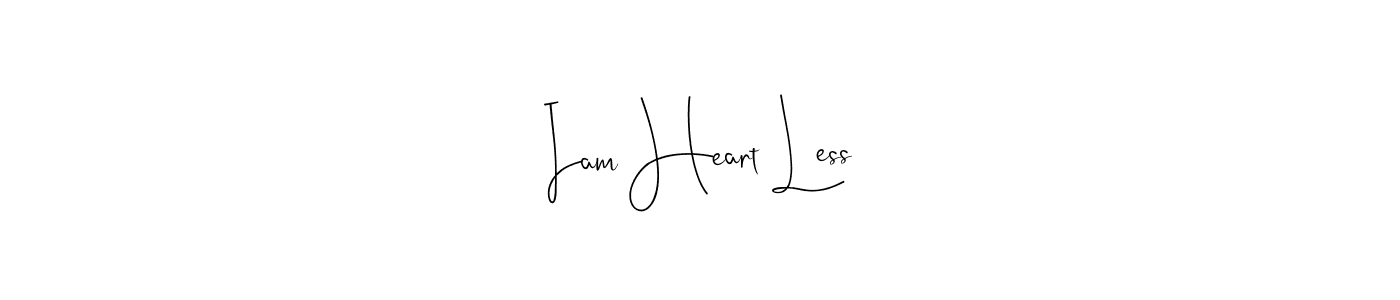 Iam Heart Less